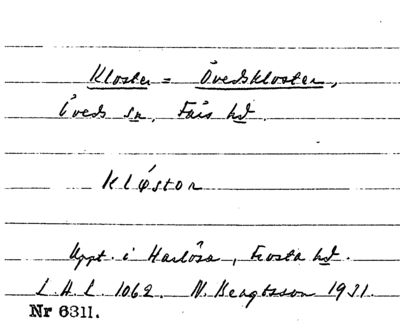 Kloster = Övedskloster,
Öveds sn, Färs hd.
klǿstor
Uppt. i Harlösa, Frosta hd.
L.A.L. 1062. N. Bengtsson 1931.
Nr 6311.